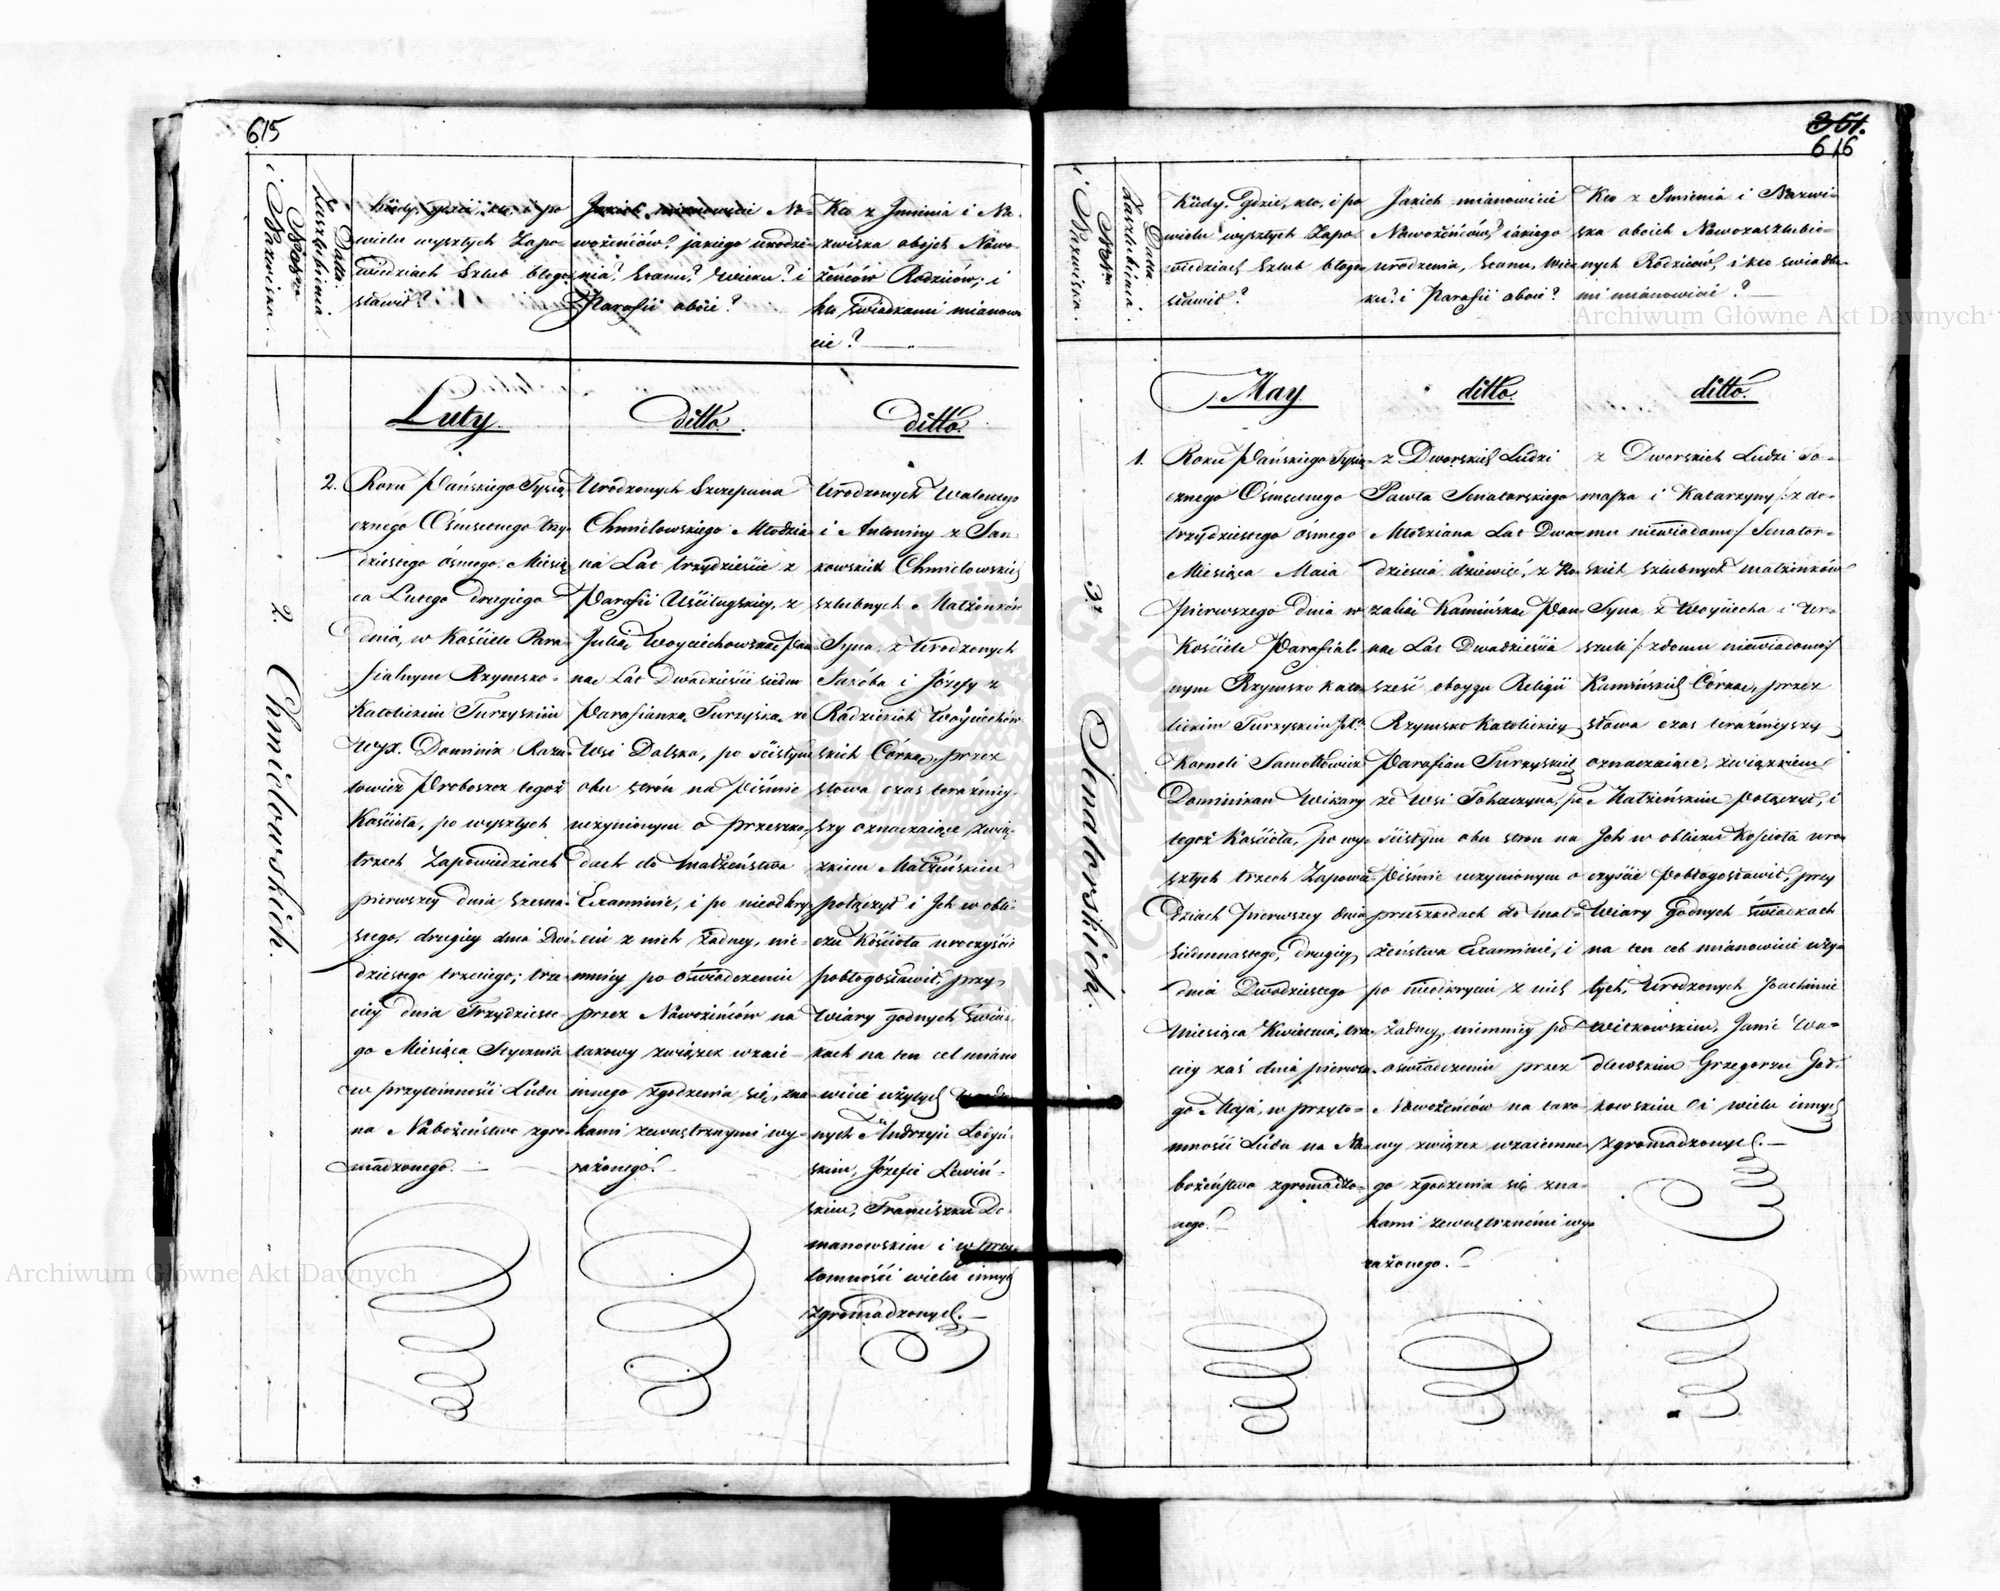 615
i Nazwiska.
Nro
Zaszlubienia.
Data
Kiedy, gdzie, kto, i po
wielu wyszłych Zapo-
wiedziach Szlub błogo-
sławił?
Jakich mianowicie No-
wożeńców? jakiego urodze-
nia? Stanu? wieku? i
Parafii oboie?
Kto z Jmienia i Na-
zwiska obojch Nowo-
żeńców Rodziców; i
kto świadkami mianowi
cie?
Luty.
ditto.
ditto.
2. Chmielowskich.
2. Roku Pańskiego Tysią
cznego Ośmsetnego trzy-
dziestego ósmego Miesią
ca Lutego drugiego
dnia, w Kościele Para-
fialnym Rzymsko-
Katolickim Turzyskim
WJX. Dominik
Proboszcz tegoż
Kościoła, po wyszłych
trzech Zapowiedziach
pierwszey dnia szesna-
stego, drugiey dnia Dwó-
dziestego trzeciego; trze-
ciey dnia Trzydzieste-
go Miesiąca Stycznia
w przytomności Ludu
na Nabożeństwo zgro-
madzonego.
Urodzonych Szczepana
Chmielowskiego Młodzia-
na Lat trzydzieście z
Parafii Uściługskiey, z
Julią Woyciechowską Pan-
ną Lat Dwadzieście siedm
Parafianką Turzyską ze
Wsi Dolska, po ścisłym
obu stron na piśmie
uczynionym o przeszko-
dach do małżeństwa
Examinie, i po nieodkry-
ciu z nich żadney, nie-
mniey po oświadczeniu
przez Nowożeńców na
takowy związek wzaie-
mnego zgodzenia się, zna-
kami zewnętrznymi wy-
rażonego.
Urodzonych Walentego
i Antoniny z Jan-
kowskich Chmielowskich
szlubnych Małżonków
Syna, z Urodzonych
Jakóba i Józefy z
Radzickich Woyciechow-
skich Córką, przez
słowa czas teraźniey-
szy oznaczaiące zwią-
zkiem Małżeńskim
połączył i Jch w obli-
czu Kościoła uroczyście
pobłogosławił, przy
Wiary godnych świad-
kach na ten cel miano
wicie użytych Urodzo-
nych Andrzeju
skim, Józefie Lewiń-
skim, Franciszku Do-
manowskim i w przy-
tomności wielu innych
zgromadzonych.
351.
616
i Nazwiska.
Nro
Zaszlubienia.
Data
Kiedy, Gdzie, kto, i po
wielu wyszłych Zapo-
wiedziach Szlub błogo-
sławił?
Jakich mianowicie
Nowożeńców? iakiego
urodzenia, Stanu, Wie-
ku? i Parafii oboie?
Kto z Jmienia i Nazwi-
ska oboich Nowozaszlubio-
nych Rodziców, i kto świadka-
mi mianowicie?
May
ditto.
ditto.
3. Senatorskich.
1. Roku Pańskiego Tysią-
cznego Ośmsetnego
trzydziestego ósmego
Miesiąca Maia
pierwszego dnia w
Kościele Parafial-
nym Rzymsko Kato-
lickim Turzyskim JX.
Korneli Samotłowicz
Dominikan Wikary
tegoż Kościoła, po wy-
szłych trzech Zapowie-
dziach pierwszey dnia
siedmnastego, drugiey
dnia Dwódziestego
Miesiąca Kwietnia, trze-
ciey zaś dnia pierwsze-
go Maja, w przyto-
mności Ludu na Na-
bożeństwo zgromadzo-
nego.
z Dworskich Ludzi
Pawła Senatorskiego
Młodziana Lat Dwa-
dzieścia dziewięć, z Ro-
zalią Kamińską Pan-
ną Lat Dwadzieścia
sześć oboyga Religii
Rzymsko Katolickiey
Parafian Turzyskich
ze Wsi Tohaczyna, po
ścisłym obu stron na
Piśmie uczynionym o
przeszkodach do mał-
żeństwa Examinie, i
po nieodkryciu z nich
żadney, niemniey po
oświadczeniu przez
Nowożeńców na tako-
wy związek wzaiemne-
go zgodzenia się zna-
kami zewnętrznemi wy-
rażonego.
z Dworskich Ludzi To-
masza i Katarzyny /: z do-
mu niewiadomo/ Senator-
skich szlubnych małżonków
Syna, z Woyciecha i Ur-
szuli /: z domu niewiadomo/
Kamińskich Córką, przez
słowa czas teraźnieyszy
oznaczaiące, związkiem
Małżeńskim połączył, i
Jch w obliczu Kościoła uro-
czyście Pobłogosławił, przy
Wiary godnych świadkach
na ten cel mianowicie uży-
tych, Urodzonych Joachimie
Witkowskim, Janie Wa-
dlewskim Grzegorzu God-
kowskim i wielu innych
zgromadzonych.
Archiwum Główne Akt Dawnych
Archiwum Główne Akt Dawnych